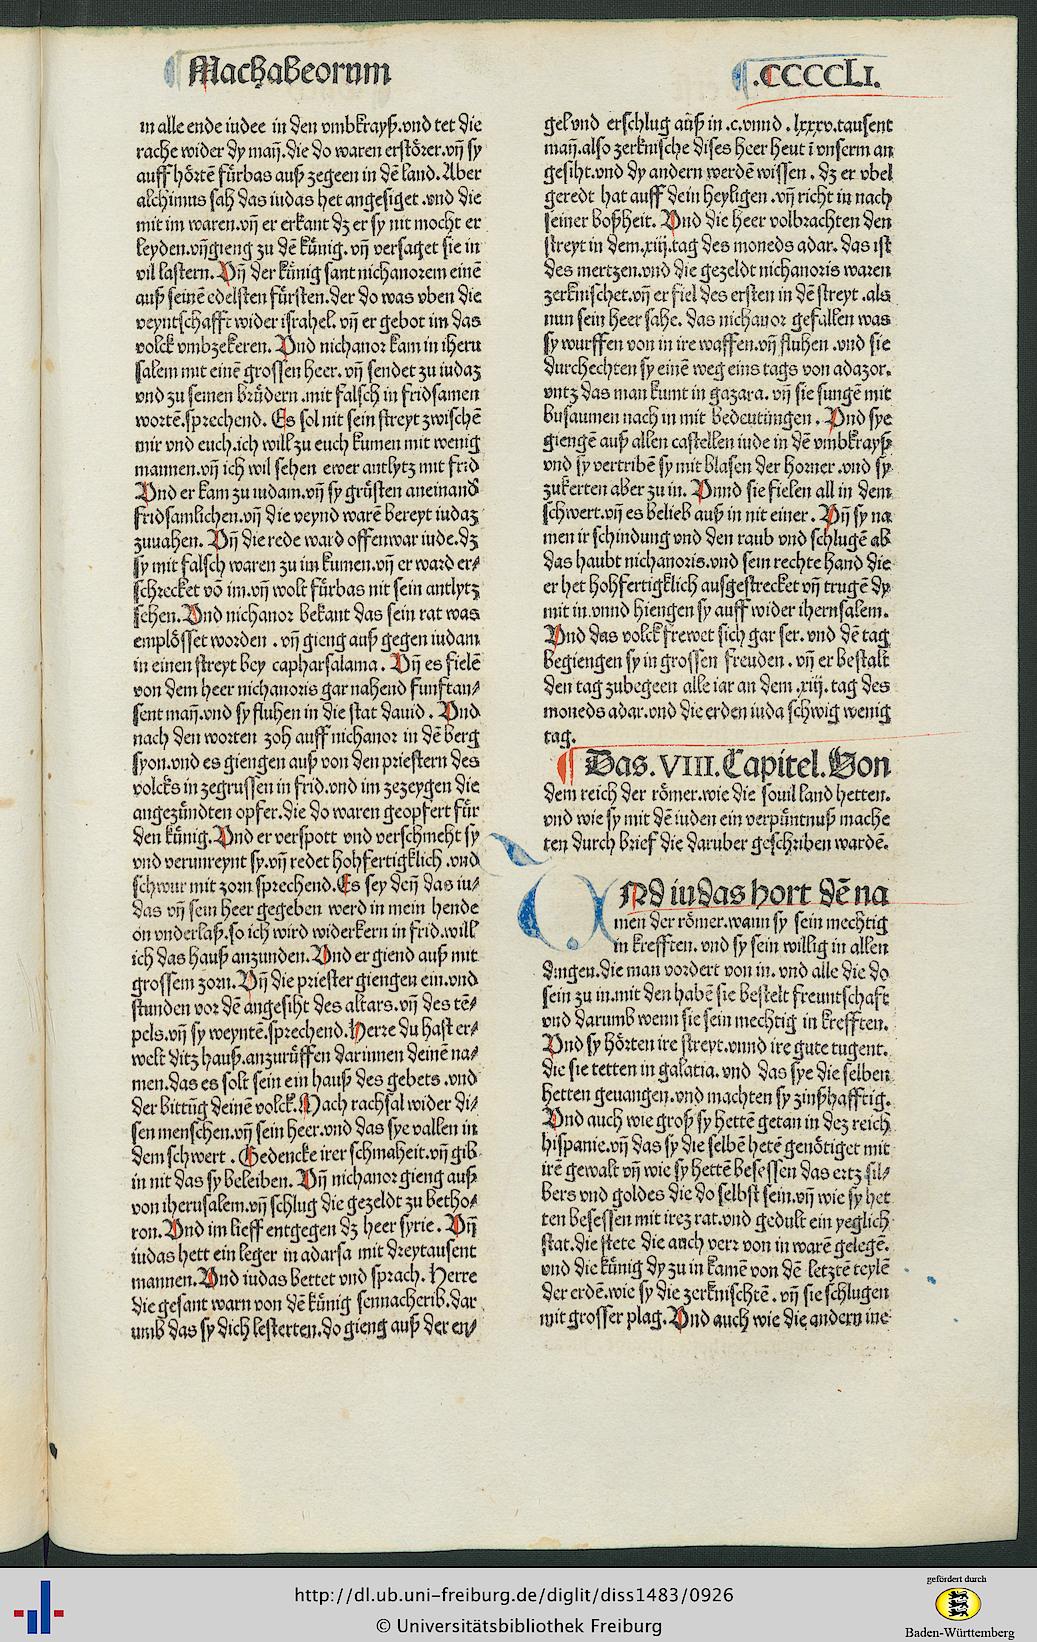 Machabeorum
.CCCCLI.
in alle ende iudee in den vmbkrayß.vnd tet die
rache wider dy mañ.die do waren erstörer.vñ sy
auff hörtē fürbas auß zegeen in dē land. Aber
alchimus sah das iudas het angesiget .vnd die
mit im waren.vñ er erkant dz er sy nit mocht er
leyden.vñgieng zu dē künig. vñ versaget sie in
vil lastern. Vñ der künig sant nichanorem einē
auß seinē edelsten fürsten.der do was vben die
veyntschafft wider israhel. vñ er gebot im das
volck vmbzekeren. Vnd nichanor kam in iheru
salem mit einē grossen heer. vñ sendet zu iudaz
vnd zu seinen brüdern .mit falsch in fridsamen
wortē.sprechend. Es sol nit sein streyt zwischē
mir vnd euch.ich will zu euch kumen mit wenig
mannen.vñ ich wil sehen ewer antlytz mit frid
Vnd er kam zu iudam.vñ sy grüsten aneinand
fridsamlichen.vñ die veynd warē bereyt iudaz
zuuahen. Vñ die rede ward offenwar iude.dz
sy mit falsch waren zu im kumen.vñ er ward er⸗
schrecket vō im.vñ wolt fürbas nit sein antlytz
sehen. Vnd nichanor bekant das sein rat was
emplösset worden . vñ gieng auß gegen iudam
in einen streyt bey capharsalama . Vñ es fielē
von dem heer nichanoris gar nahend funftau⸗
sent mañ.vnd sy fluhen in die stat dauid . Vnd
nach den worten zoh auff nichanor in dē berg
syon.vnd es giengen auß von den priestern des
volcks in zegrussen in frid.vnd im zezeygen die
angezündten opfer.die do waren geopfert für
den künig. Vnd er verspott vnd verschmeht sy
vnd verunreynt sy.vñ redet hohfertigklich .vnd
schwur mit zorn sprechend. Es sey deñ das iu⸗
das vñ sein heer gegeben werd in mein hende
on vnderlaß.so ich wird widerkern in frid.will
ich das hauß anzunden. Vnd er giend auß mit
grossem zorn. Vñ die priester giengen ein.vnd
stunden vor dē angesiht des altars.vñ des tē⸗
pels.vñ sy weyntē.sprechend. Herre du hast er⸗
welt ditz hauß.anzurüffen darinnen deinē na⸗
men.das es solt sein ein hauß des gebets .vnd
der bittūg deinē volck. Mach rachsal wider di⸗
sen menschen.vñ sein heer.vnd das sye vallen in
dem schwert . Gedencke irer schmaheit.vñ gib
in nit das sy beleiben. Vñ nichanor gieng auß
von iherusalem.vñ schlug die gezeldt zu betho⸗
ron. Vnd im lieff entgegen dz heer syrie . Vñ
iudas hett ein leger in adarsa mit dreytausent
mannen. Vnd iudas bettet vnd sprach. Herre
die gesant warn von dē künig sennacherib.dar
umb das sy dich lesterten.do gieng auß der en⸗
gel vnd erschlug auß in .c.vnnd . lxxxv.tausent
mañ.also zerknische dises heer heut ī vnserm an
gesiht.vnd dy andern werdē wissen . dz er vbel
geredt hat auff dein heyligen .vñ richt in nach
seiner boßheit. Vnd die heer volbrachten den
streyt in dem.xiij.tag des moneds adar. das ist
des mertzen.vnd die gezeldt nichanoris waren
zerknischet.vñ er fiel des ersten in dē streyt .als
nun sein heer sahe. das nichanor gefallen was
sy wurffen von in ire waffen.vñ fluhen .vnd sie
durchechten sy einē weg eins tags von adazor.
vntz das man kumt in gazara. vñ sie sungē mit
busaumen nach in mit bedeutungen . Vnd sye
giengē auß allen castellen iude in dē vmbkrayß
vnd sy vertribē sy mit blasen der horner .vnd sy
zukerten aber zu in. Vnnd sie fielen all in dem
schwert.vñ es belieb auß in nit einer . Vñ sy na
men ir schindung vnd den raub vnd schlugē ab
das haubt nichanoris.vnd sein rechte hand die
er het hohfertigklich ausgestrecket vñ trugē dy
mit in.vnnd hiengen sy auff wider iherusalem.
Vnd das volck frewet sich gar ser. vnd dē tag
begiengen sy in grossen freuden . vñ er bestalt
den tag zubegeen alle iar an dem .xiij. tag des
moneds adar.vnd die erden iuda schwig wenig
tag.
Das. VIII. Capitel. Von
dem reich der römer.wie die souil land hetten.
vnd wie sy mit dē iuden ein verpüntnuß mache
ten durch brief die daruber geschriben wardē.
VNd iudas hort dē na
men der römer.wann sy sein mechtig
in krefften. vnd sy sein willig in allen
dingen.die man vordert von in. vnd alle die do
sein zu in.mit den habē sie bestelt freuntschaft
vnd darumb wenn sie sein mechtig in krefften.
Vnd sy hörten ire streyt.vnnd ire gute tugent.
die sie tetten in galatia. vnd das sye die selben
hetten geuangen.vnd machten sy zinßhafftig.
Vnd auch wie groß sy hettē getan in dez reich
hispanie.vñ das sy die selbē hetē genötiget mit
irē gewalt vñ wie sy hettē besessen das ertz sil⸗
bers vnd goldes die do selbst sein.vñ wie sy het
ten besessen mit irez rat.vnd gedult ein yeglich
stat.die stete die auch verr von in warē gelegē.
vnd die künig dy zu in kamē von dē letztē teylē
der erdē.wie sy die zerknischtē . vñ sie schlugen
mit grosser plag. Vnd auch wie die andern ine
http://dl.ub.uni-freiburg.de/diglit/diss1483/0926
© Universitätsbibliothek Freiburg
gefördert durch
Baden-Württemberg